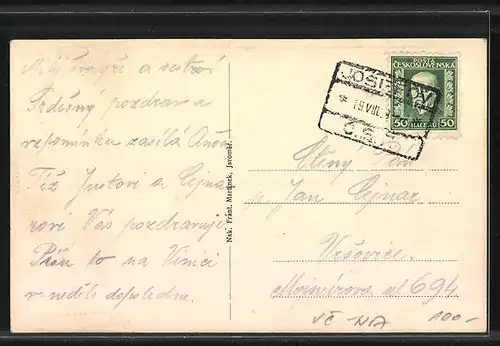 Milý švagře a sestro!
Srdečný pozdrav a
vzpomínku zasílá
Též Justovi a Cejna-
rovi Vás pozdravují.
Píšu to na Vinici
v neděli dopoledne.
Nakl. Frant. Martínek, Jaroměř.
POŠTA
ČESKOSLOVENSKÁ
50 HALÉŘŮ 50
JOSEFOV
19 VIII
Č.S.
Ctěný Pán
p Jan Cejnar
Vršovice
Mojmírova ul 694
VČ-NA 100-